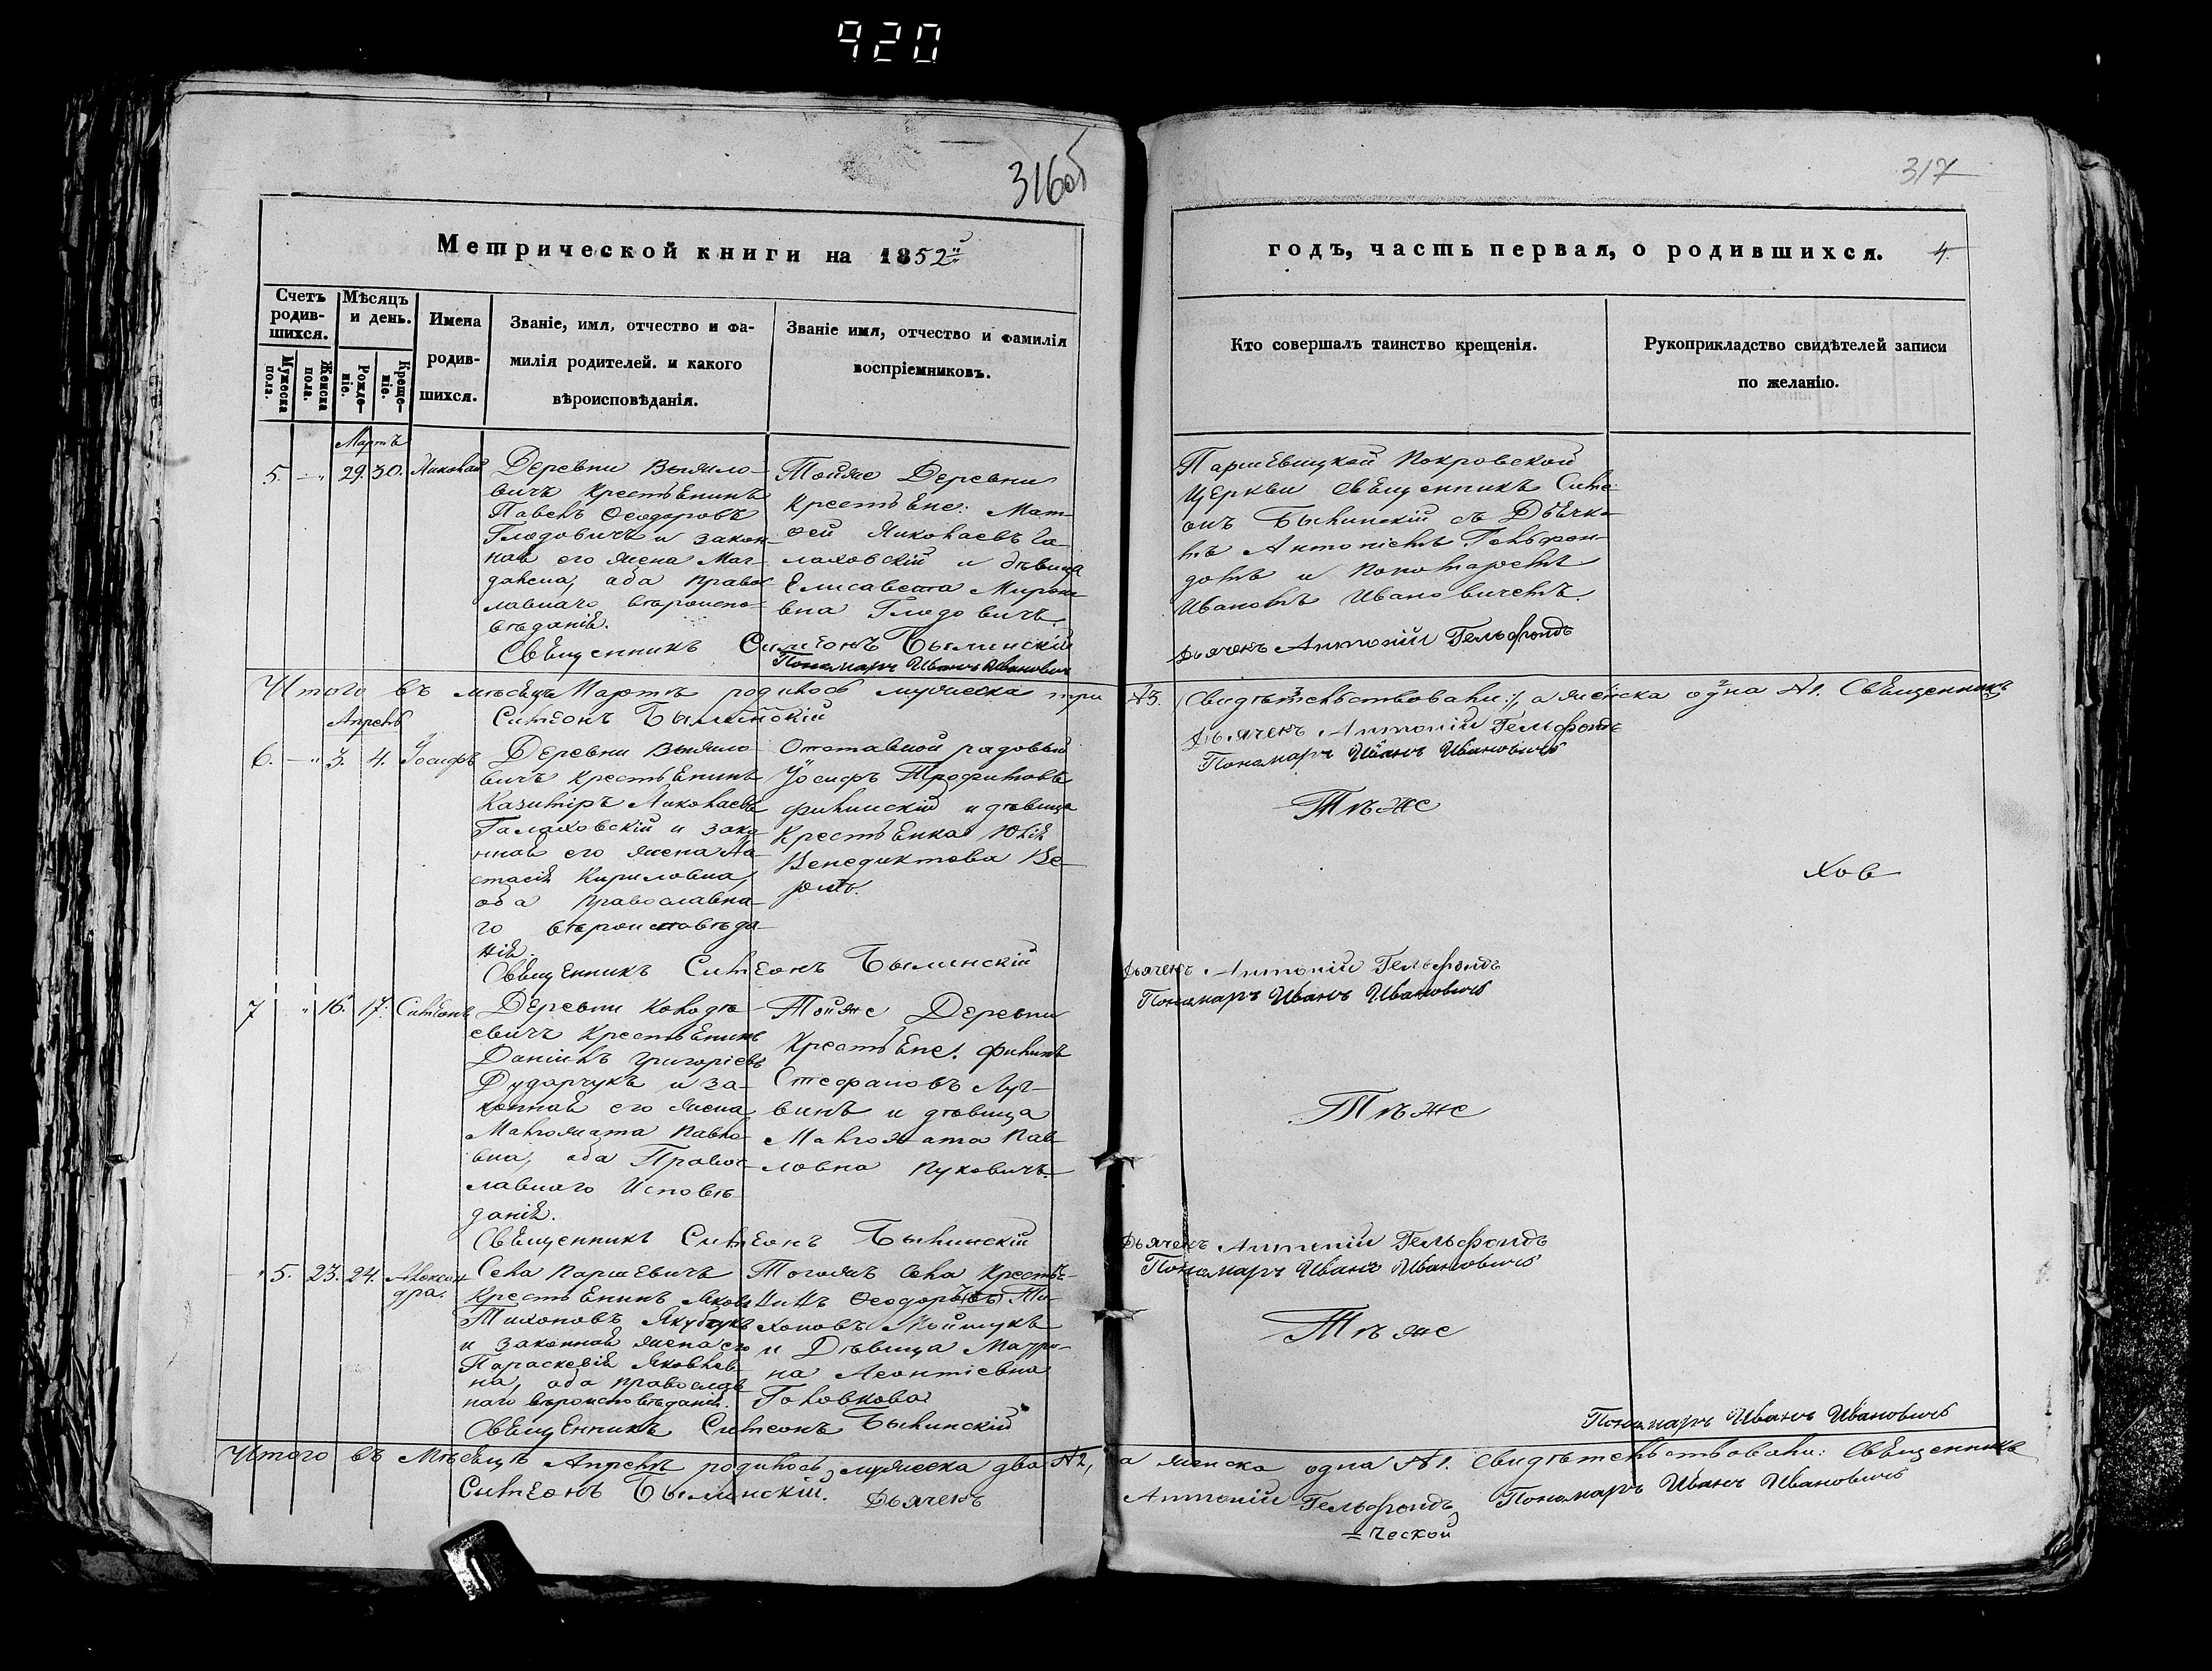 920
316об
317
Метрической книги на 1852й
годъ, часть первая, о родившихся. 4.
Счетъ родив-шихся.
Мѣсяцъ и день.
Имена родив-шихся.
Званіе, имя, отчество и фа-
милія родителей. и какого
вѣроисповѣданія.
Званіе имя, отчество и фамилія
воспріемниковъ.
Мужеска пола.
Женска пола.
Рожде-ніе.
Креще-ніе.
Кто совершалъ таинство крещенія.
Рукоприкладство свидѣтелей записи
по желанію.
Мартъ
5. — „ 29. 30. Николай
Деревни Выжло-
вичъ Крестьянинъ
Павелъ Ѳеодоровъ
Глодовичъ и закон
ная его жена Маг-
далена, оба право-
лавнаго вѣроиспо-
вѣданія.
Тойже Деревни
Крестьяне: Мат-
ѳей Николаевъ Га-
лаховскій и дѣвица
Елисавета Миро-
вна Глодовичъ.
Священникъ Симеонъ Былинскій
Пономарь Иванъ Ивановичъ
Паршевицкой Покровской
Церкви Священникъ Симе-
онъ Былинскій съ Дьячко-
мъ Антоніемъ Гельфон-
домъ и Пономаремъ
Иваномъ Ивановичемъ.
Дьячекъ Антоній Гельфондъ
Итого въ мѣсяцѣ Мартѣ родилось мужеска три №3. (Свидѣтельствовали:/, а женска одна №1. Священникъ
Симеонъ Былинскій
Дьячекъ Антоній Гельфондъ
Пономарь Иванъ Ивановичъ
Апрель
6. — „ 3. 4. Іосифъ
Деревни Выжло-
вичъ Крестьянинъ
Казимiръ Николаевъ
Галаховскій и зако-
нная его жена На-
стасія Кириловна,
оба Православна-
го вѣроисповѣда-
нія.
Отставной рядовый
Іосифъ Трофимовъ
Филинскій и дѣвица
Крестьянка Юлія
Венедиктова Ве-
Тѣже
хов
Священникъ Симеонъ Былинскій
Дьячекъ Антоній Гельфондъ
Пономарь Иванъ Ивановичъ
7 „ 16. 17. Симеонъ
Деревни Колодѣ-
евичъ Крестьянинъ
Даніилъ Григоріевъ
Дударчукъ и за-
конная его жена
Малгожата Павло-
вна, оба Правос-
лавнаго Исповѣ-
данія.
Тойже Деревни
Крестьяне: Филипъ
Стефановъ Луг-
винъ и дѣвица
Малгожата Пав-
ловна Пуковичъ.
Тѣже
Священникъ Симеонъ Былинскій
Дьячекъ Антоній Гельфондъ
Пономарь Иванъ Ивановичъ
„ 5. 23. 24. Алексан
дра.
Села Паршевичъ
Крестьянинъ Яковъ
Тихоновъ Якубчукъ
и законная жена его
Параскевія Яковлев-
на, оба православ
наго вѣроисповѣданія.
Тогожъ Села Крестья-
нинъ Ѳеодоръ Ти-
хоновъ Мойтукъ
и Дѣвица Матро-
на Леонтіевна
Головкова
Тѣже
Священникъ Симеонъ Былинскій
Пономарь Иванъ Ивановичъ
Итого въ Мѣсяцѣ Апрелѣ родилось, мужеска два №2, а женска одна №1. Свидѣтельствовали: Священникъ
Симеонъ Былинскій. Дьячекъ Антоній Гельфондъ Пономарь Иванъ Ивановичъ
=ческой